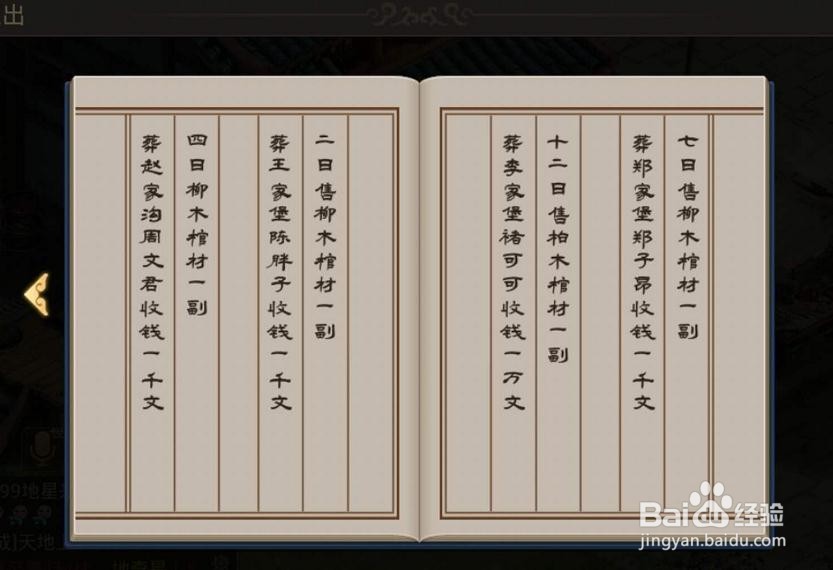 出
七日售柳木棺材一副
葬郑家堡郑子昂收钱一千文
十二日售柏木棺材一副
葬李家堡褚可可收钱一万文
二日售柳木棺材一副
葬王家堡陈胖子收钱一千文
四日柳木棺材一副
葬赵家沟周文君收钱一千文
Baidu经验
jingyan.baidu.com